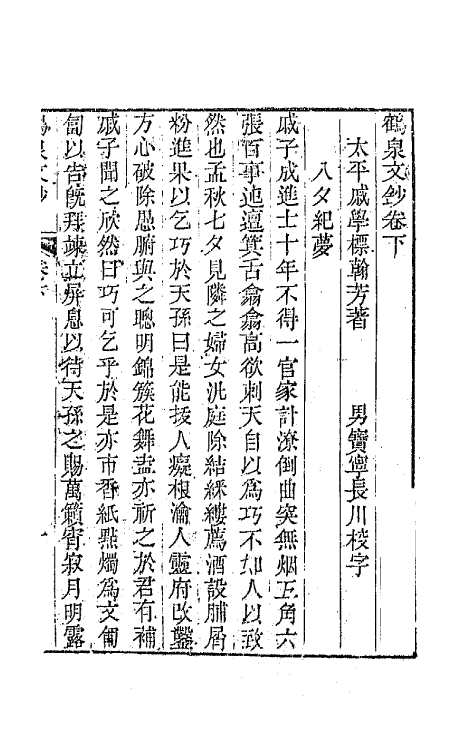 鶴泉文鈔卷下
太平戚學標翰芳著　　男寶寧長川校字
八夕紀夢
戚子成進士十年不得一官家計潦倒曲突無烟五角六
張百事迍邅箕舌翕翕高欲刺天自以爲巧不如人以致
然也孟秋七夕見隣之婦女洗庭除結綵縷薦酒設脯屑
粉進果以乞巧於天孫曰是能拔人癡根瀹人靈府改鑿
方心破除愚腑與之聰明錦簇花舞盍亦祈之於君有補
戚子聞之欣然曰巧可乞乎於是亦市香紙點燭爲文匍
匐以告旣拜竦立屏息以待天孫之賜萬籟宵寂月明露
鶴泉文鈔　卷下　一